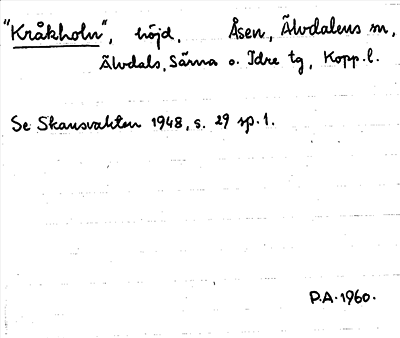 "Kråkholn", höjd, Åsen, Älvdalens sn,
Älvdals, Särna o. Idre tg, Kopp.l.
Se Skansvakten 1948, s. 29 sp. 1.
P.A. 1960.